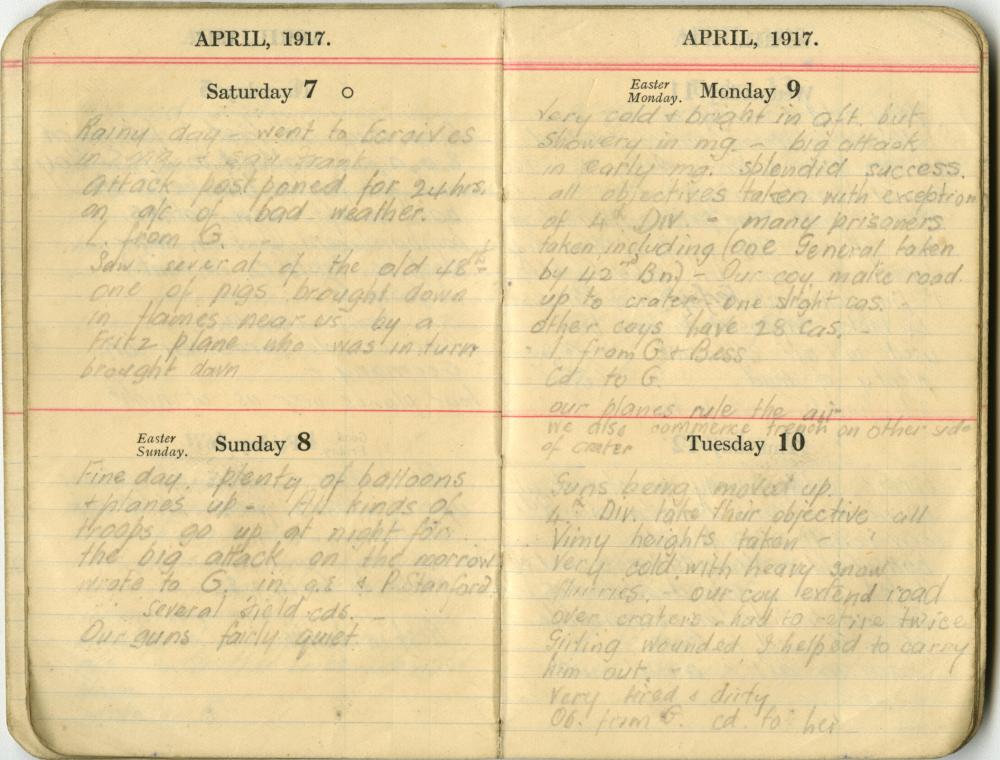 APRIL, 1917.
Saturday 7
Rainy day - went to
in & saw Frank
Attack postponed for 24 hrs.
on a/c of bad weather.
l. from G.
Saw several of the old 48th -
one of pigs brought down
in flames near us by a
Fritz plane who was in turn
brought down
Easter
Sunday. Sunday 8
Fine day. plenty of balloons
+ planes up - All kinds of
troops go up at night for
the big attack on the morrow
wrote to G. in g.e & P. Stanford.
several field cds. -
Our guns fairly quiet.
APRIL, 1917.
Easter
Monday. Monday 9
Very cold + bright in aft. but
showery in mg. - big attack
in early mg. splendid success.
all objectives taken with exception
of 4th Div. - many prisoners
taken including (one General taken
by 42nd Bn) - Our coy make road
up to crater - one slight cas. -
other coys have 28 cas. -
l. from G + Bess
Cd. to G.
our planes rule the air
we also commence trench on other side
of crater
Tuesday 10
Guns being moved up.
4th Div. take their objective all
Vimy heights taken -
Very cold with heavy snow
flurries. - our coy extend road
over craters - had to retire twice
Girling wounded I helped to carry
him out. -
Very tired & dirty
Ob. from G. cd. to her